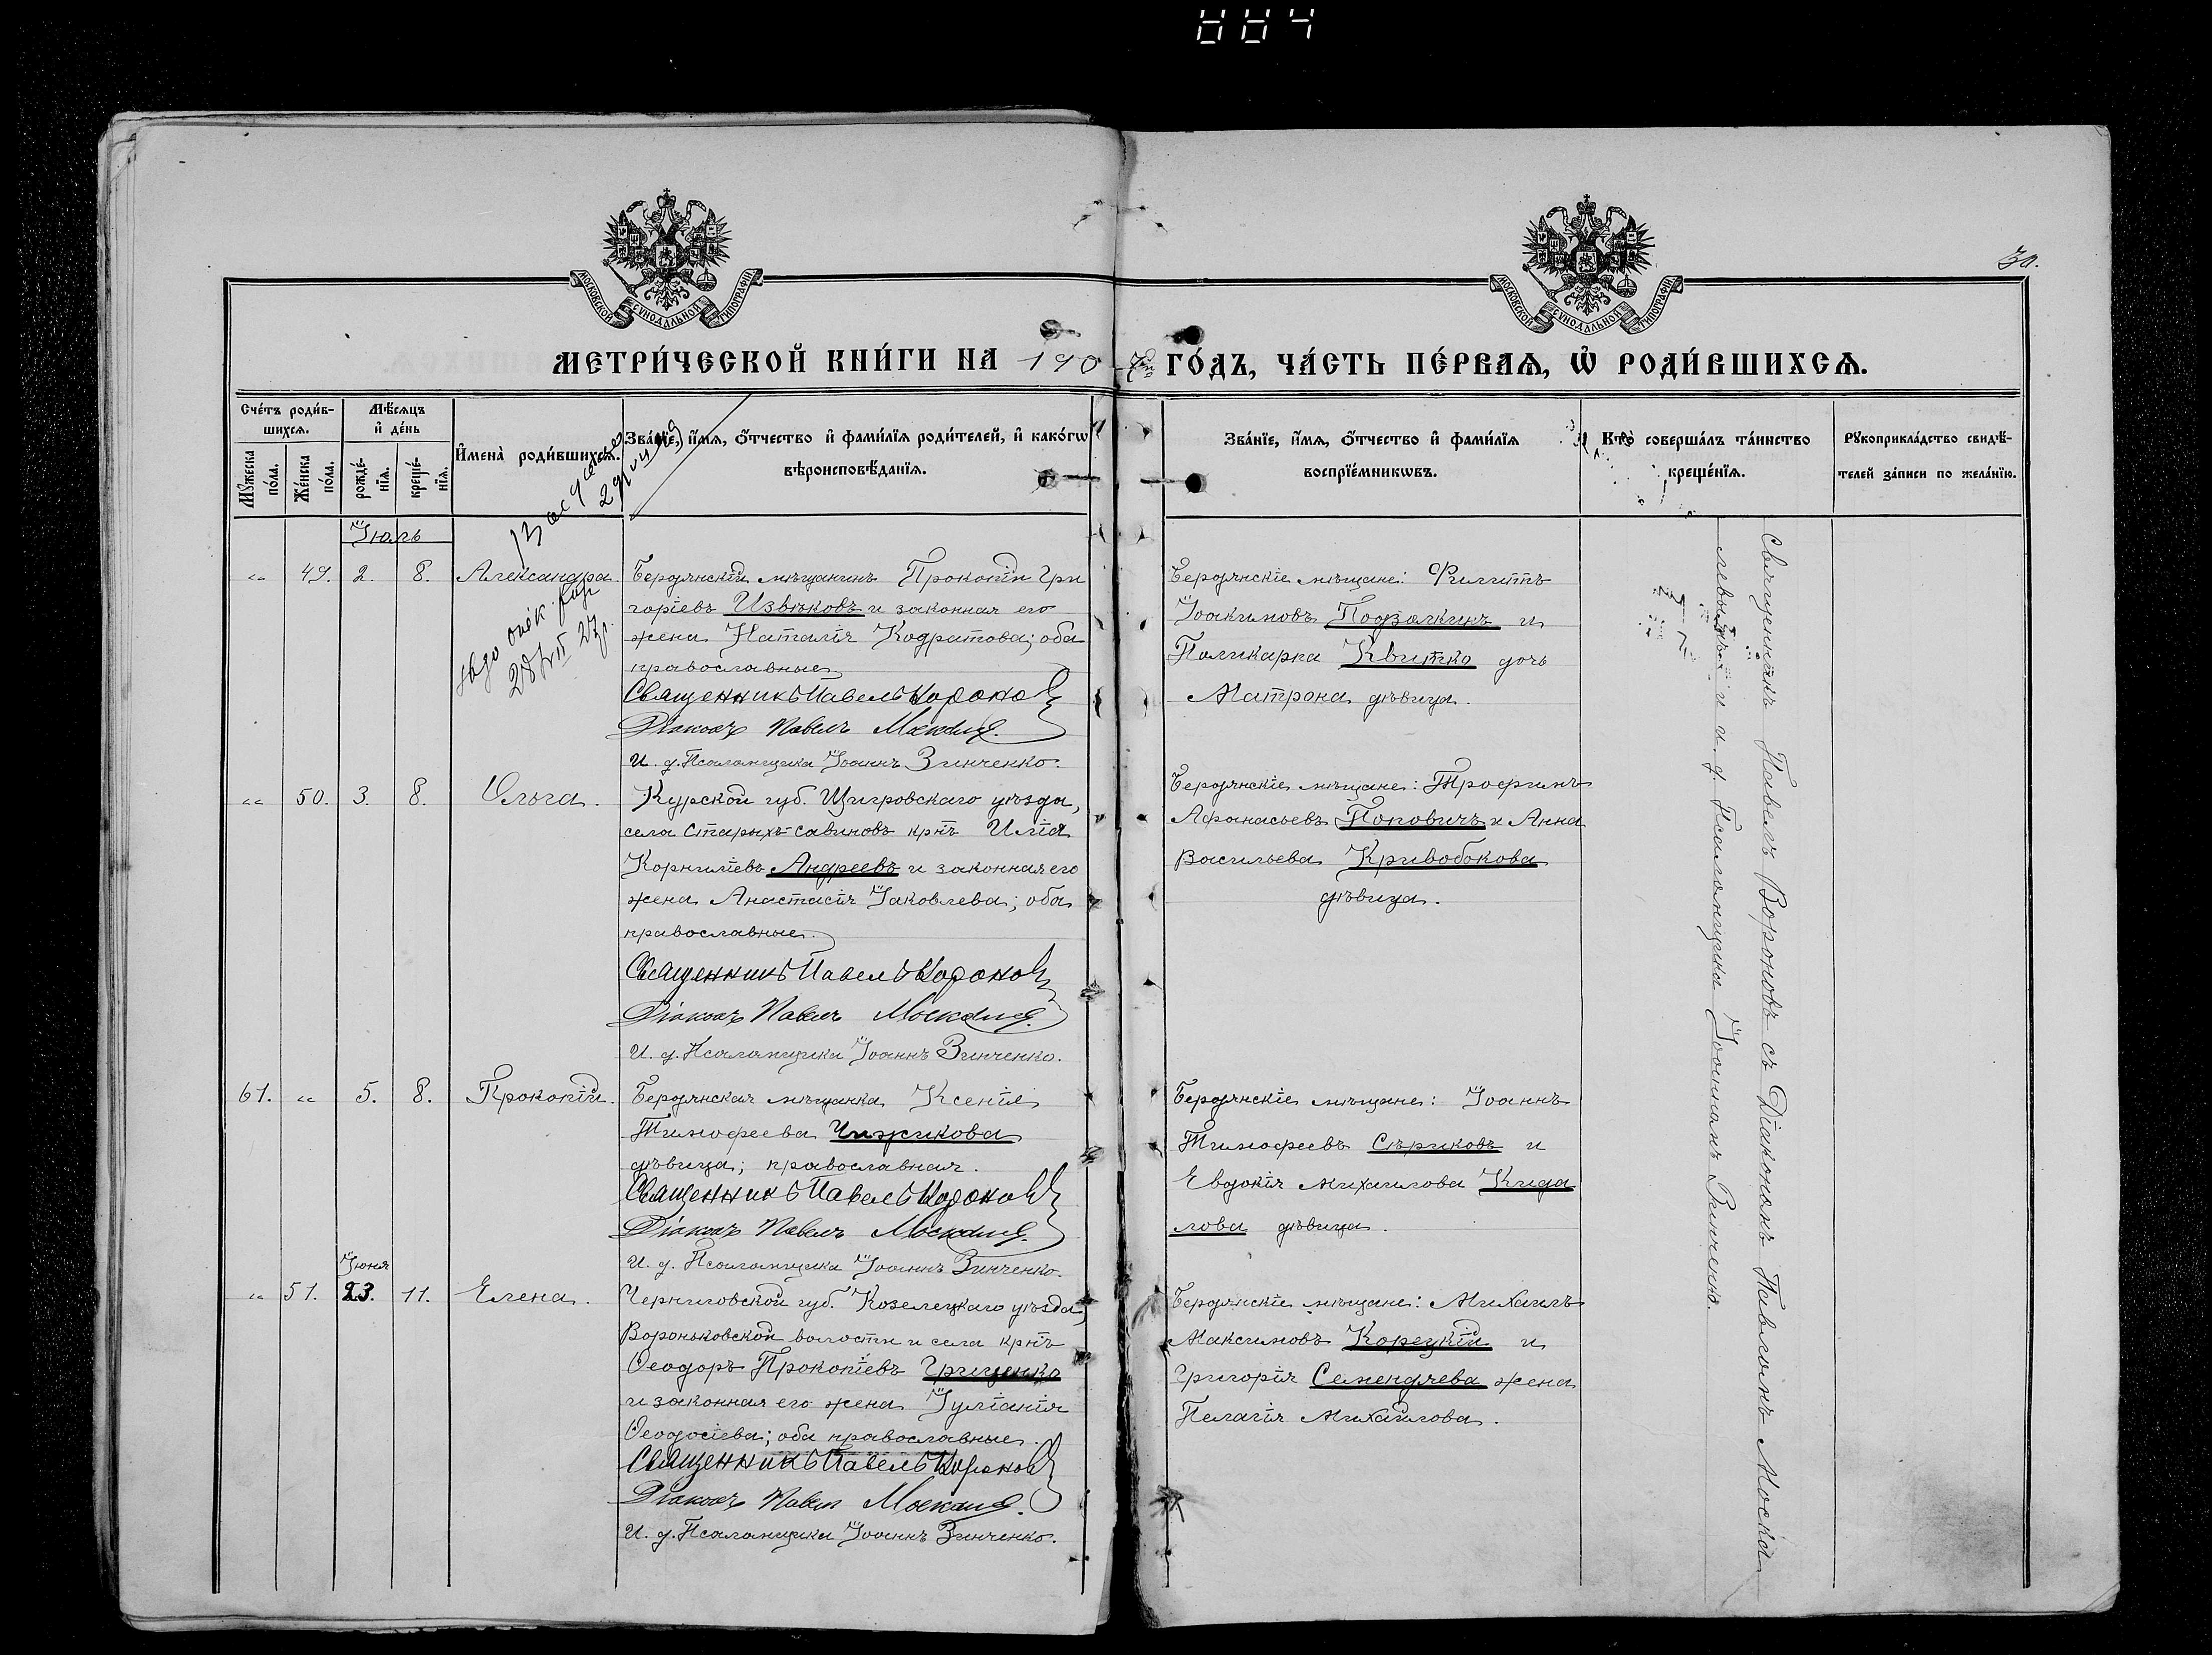 884
30.
МОСКОВСКОЙ СѴНОДАЛЬНОЙ ТИПОГРАФІИ
МОСКОВСКОЙ СѴНОДАЛЬНОЙ ТИПОГРАФІИ
МЕТРИ́ЧЕСКОЙ КНИ́ГИ НА 190 7й ГО́ДЪ, ЧА́СТЬ ПЕ́РВАѦ, Ѡ҆ РОДИ́ВШИХСѦ.
Сче́тъ роди́в-
шихсѧ.
Мꙋ́жеска по́ла.
Же́нска по́ла.
Мѣ́сѧцъ
и҆ де́нь
рожде́-нїѧ.
креще́-нїѧ.
И҆мена̀ роди́вшихсѧ.
Зва́нїе, и҆́мѧ, ѻ҆́тчество и҆ фами́лїѧ роди́телей, и҆ како́гѡ
вѣроисповѣ́данїѧ.
Зва́нїе, и҆́мѧ, ѻ҆́тчество и҆ фами́лїѧ
воспрїе́мникѡвъ.
Кто̀ соверша́лъ та́инство
креще́нїѧ.
Рꙋкоприкла́дство свидѣ́-
телей за́писи по жела́нїю.
Іюль
„ 49. 2. 8. Александра.
Бердянскій мѣщанинъ Прокопій Гри
горіевъ Извѣковъ и законная его
жена Наталія Кодратова; оба
православные
Священникъ Павелъ Вороновъ
Діаконъ Павелъ Москалев
И. д. Псаломщика Іоаннъ Зинченко.
Бердянскіе мѣщане: Филиппъ
Іоакимовъ Подзалкинъ и
Поликарпа Квитко дочь
Матрона дѣвица.
„ 50. 3. 8. Ольга.
Курской губ. Щигровскаго уѣзда,
села Старыхъ-савиновъ крнъ Илія
Корниліевъ Андреевъ и законная его
жена Анастасія Іаковлева; оба
православные.
Священникъ Павелъ Вороновъ
Діаконъ Павелъ Москалев
И. д. Псаломщика Іоаннъ Зинченко.
Бердянскіе мѣщане: Трофимъ
Афанасьевъ Поповичъ и Анна
Васильева Кривобокова
дѣвица.
61. „ 5. 8. Прокопій.
Бердянская мѣщанка Ксенія
Тимофеева Чижикова
дѣвица; православная.
Священникъ Павелъ Вороновъ
Діаконъ Павелъ Москалев
И. д. Псаломщика Іоаннъ Зинченко.
Бердянскіе мѣщане: Іоаннъ
Тимофеевъ Сѣриковъ и
Евдокія Михаилова Кида
лова дѣвица.
Іюня
„ 51. 23. 11. Елена.
Черниговской губ. Козелецкаго уѣзда,
Вороньковской волости и села крнъ
Ѳеодоръ Прокопіевъ Грищенко
и законная его жена Іуліанія
Ѳеодосіева; оба православные.
Священникъ Павелъ Вороновъ
Діаконъ Павелъ Москалев
И. д. Псаломщика Іоаннъ Зинченко.
Бердянскіе мѣщане: Михаилъ
Максимовъ Корецкій и
Григорія Семендяева жена
Пелагія Михайлова.
Священникъ Павелъ Вороновъ съ Діакономъ Павломъ Моска
левымъ и и. д. Псаломщика Іоанномъ Зинченко.